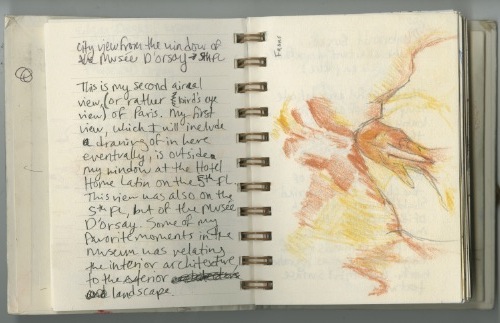 city view from the window of
the Musée D'orsay → 5th FL
This is my second aireal
view, (or rather bird's eye
view) of Paris. My first
view, which I will include
a drawing of in here
eventually, is outside
my window at the Hotel
Home Latin on the 5th FL.
This view was also on the
5th FL, but of the Musée
D'orsay. Some of my
favorite moments in the
museum was relating
the interior architecture
to the exterior
landscape.